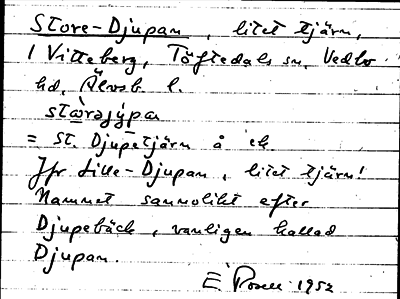 Store-Djupan, litet tjärn,
i Vitteberg, Töftedals sn, Vedbo
hd, Älvsb. l.
= St. Djupetjärn å ek.
Jfr Lille-Djupan, litet tjärn!
Namnet sannolikt efter
Djupebäck, vanligen kallad
Djupan.
E 1952